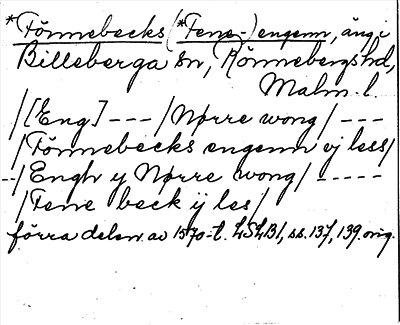 *Tönnebecks (*Tene-) engenn, äng i
Billeberga sn, Rönnebergs hd,
Malm. l.
/[Eng] --- /Nørre wong/ ---
/Tönnebecks engenn vj less/
--/Engh y Nørre wong/ -----
/Tene beck ÿ les/
förra delen av 1570-t. LSLB1, ss. 137, 139. orig.